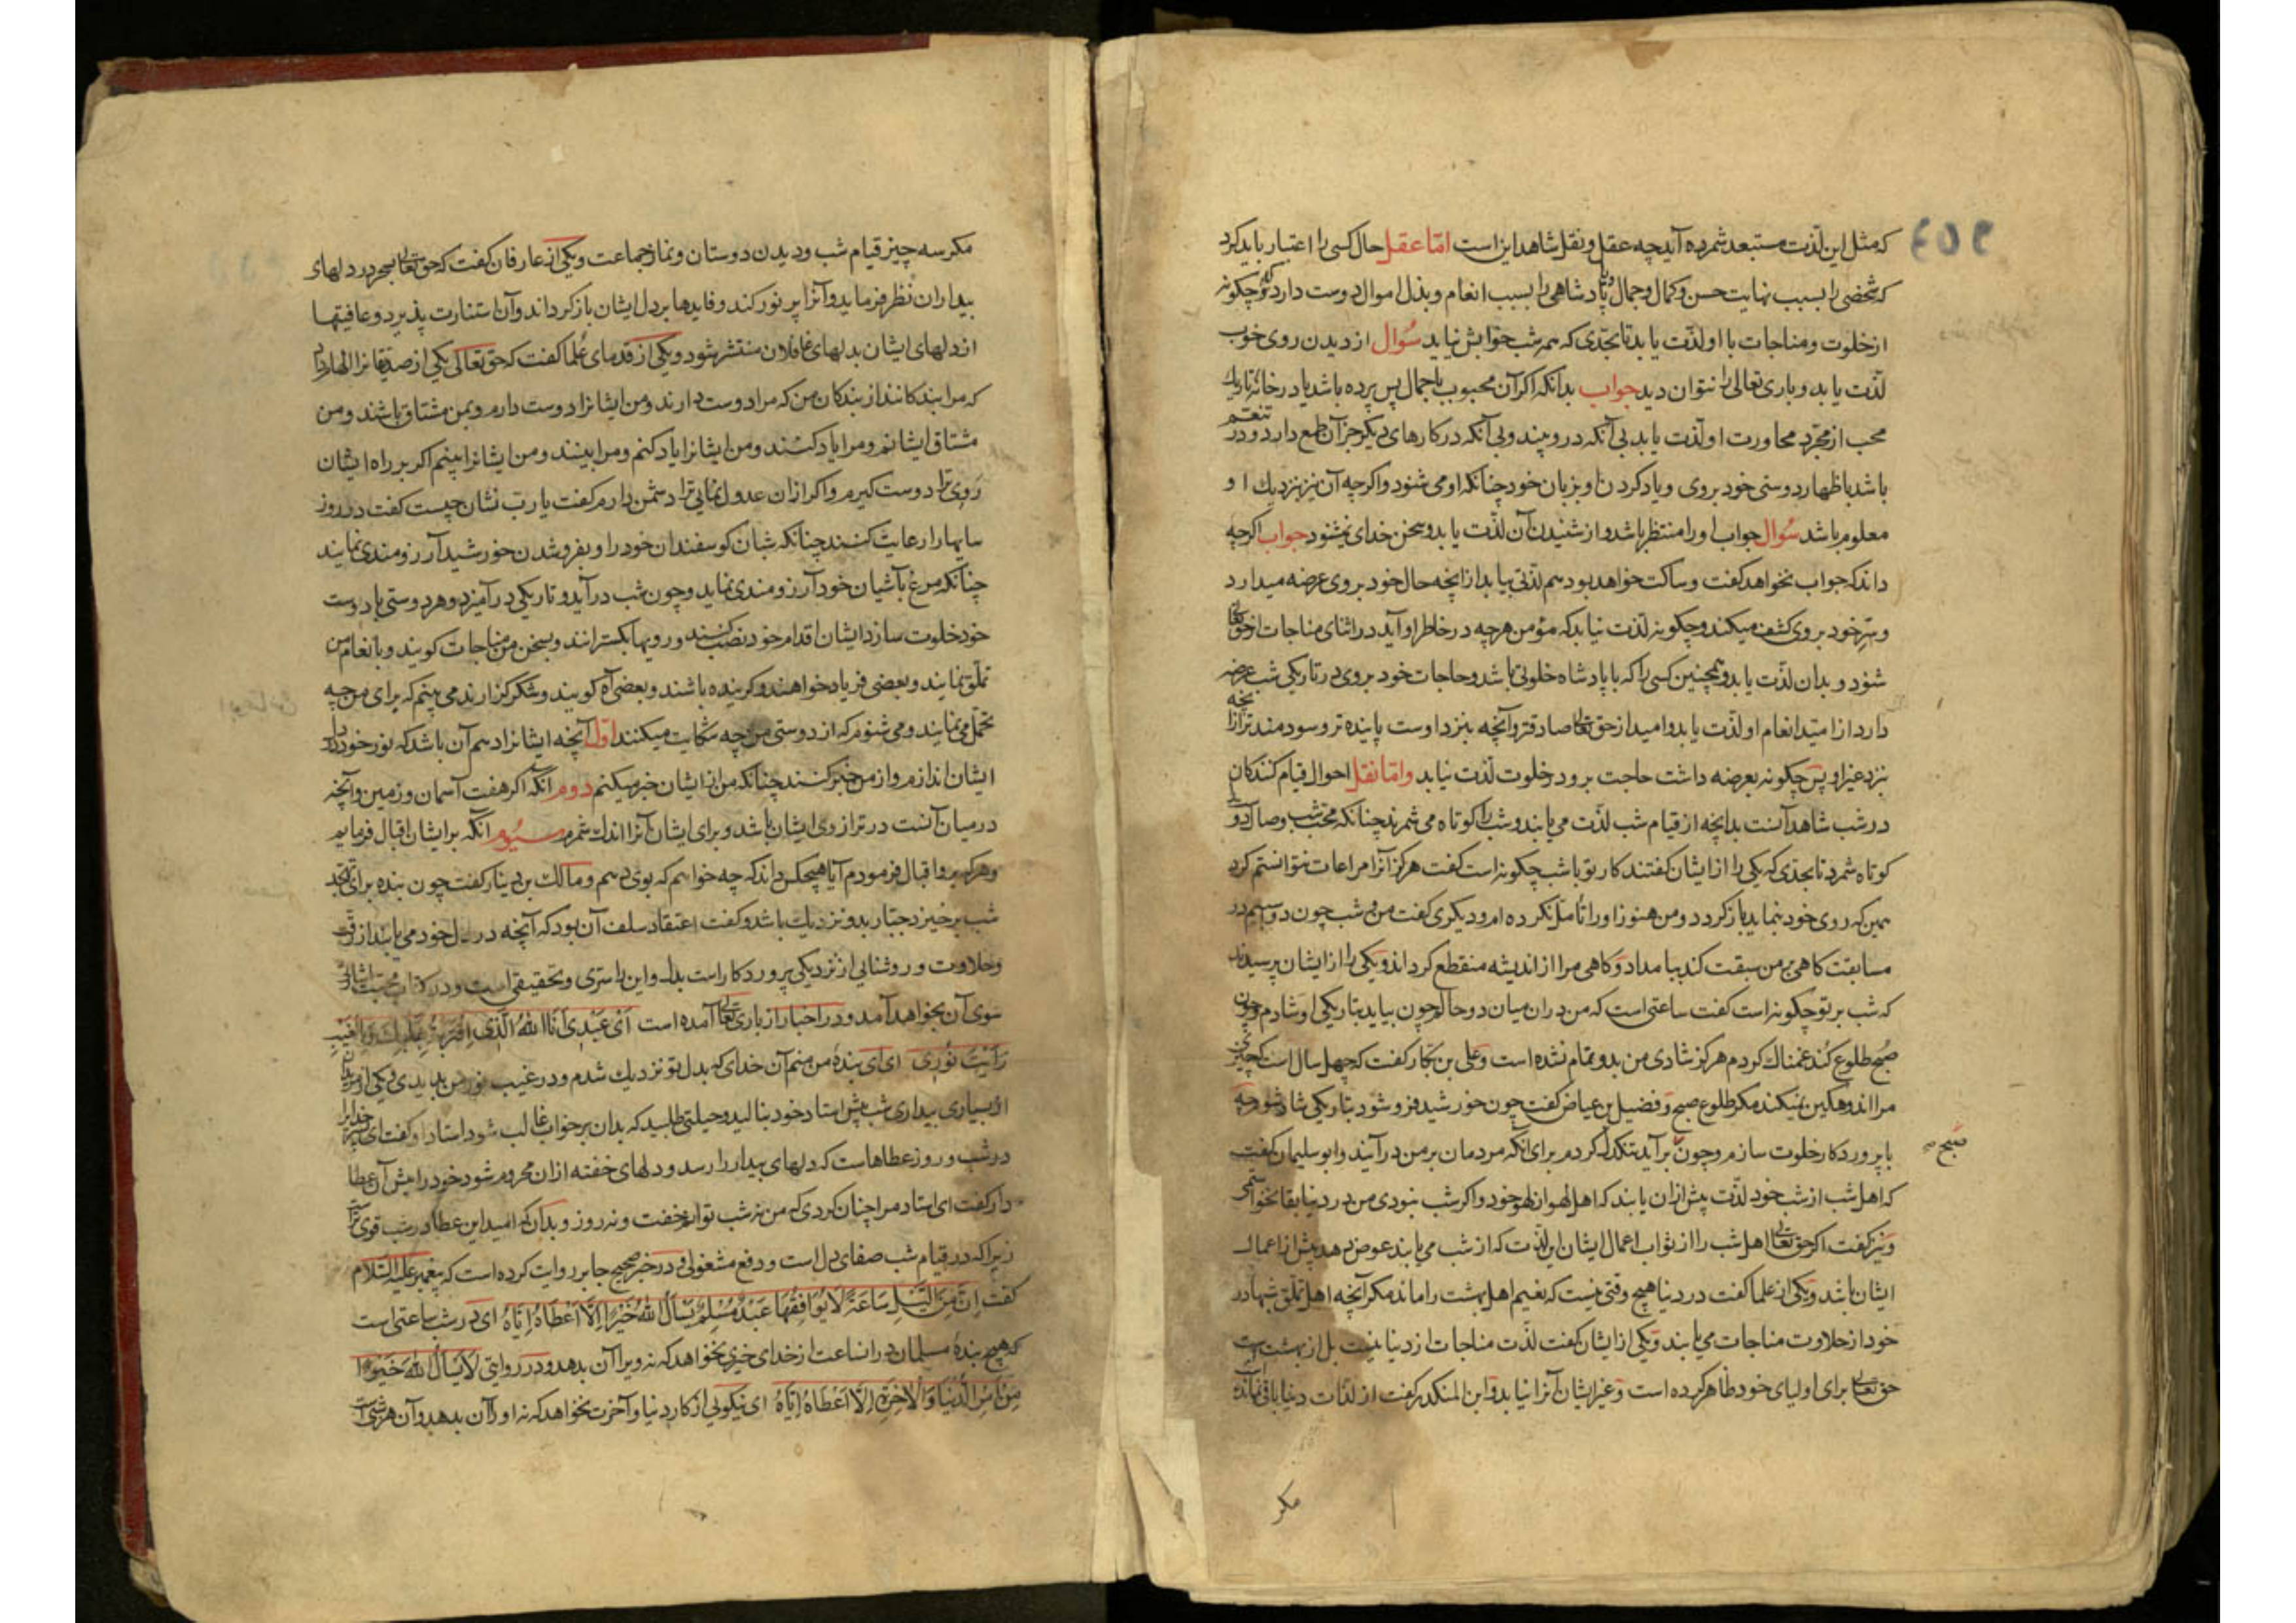 که مثل این لذت مستبعد شمرده آید چه عقل و نقل شاهد این است اما عقل حال کسی را اعتبار باید کرد
که شخصی را بسبب نهایت حسن و کمال و جمال و یا پادشاهی را بسبب انعام و بذل اموال دوست دارد که او چگونه
از خلوت و مناجات با او لذت یابد تا بحدی که همه شب خوابش نیاید سؤال از دیدن روی خوب
لذت یابد و باری تعالی را نتوان دید جواب بدانکه اگر آن محبوب باجمال پس پرده باشد یا در خانه تاریک
محب از مجرد محاورت او لذت یابد بی آنکه در وبیند و بی آنکه در کارهای دیگر جز آن طمع دارد و در تنعم
باشد باظهار دوستی خود بر وی و یاد کردن او بزبان خود چنانکه او می شنود و اگرچه آن نیز بنزدیک او
معلوم باشد سؤال جواب او را منتظر باشد و از شنیدن آن لذت یابد و سخن خدای نمیشنود جواب اگرچه
داند که جواب نخواهد گفت و ساکت خواهد بود هم لذتی بیابد از انچه حال خود بر وی عرضه میدارد
و سر خود بر وی کشف میکند و چگونه لذت نیابد که مؤمن هرچه در خاطر او آید در اثنای مناجات از حق تعالی
شنود و بدان لذت یابد و همچنین کسی را که با پادشاه خلوتی باشد و حاجات خود بر وی در تاریکی شب عرضه
دارد از امید انعام او لذت یابد و امید از حق تعالی صادقتر و آنچه بنزد اوست پاینده تر و سودمندتر از انچه
نزد غیر او پس چگونه بعرضه داشت حاجت برو در خلوت لذت نیابد و اما نقل احوال قیام کنندگان
در شب شاهد آنست بدانچه از قیام شب لذت می یابند و شب را کوتاه می شمرند چنانکه محب شب وصال دوست
کوتاه شمرد تا بحدی که یکی را از ایشان گفتند کار تو با شب چگونه است گفت هرگز آنرا مراعات نتوانستم کرد
همین که روی خود بنماید باز گردد و من هنوز او را تأمل نکرده ام و دیگری گفت من و شب چون دو اسبیم در
مسابقت گاهی بر من سبقت کند ببامداد و گاهی مرا از اندیشه منقطع گرداند و یکی را از ایشان پرسیدند
که شب بر تو چگونه است گفت ساعتی است که من در ان میان دو حالم چون بیاید بتاریکی او شادم و چون
صبح طلوع کند غمناک گردم هرگز شادی من بدو تمام نشده است و علی بن بکار گفت که چهل سال است که چیزی
مرا اندوهگین نمیکند مگر طلوع صبح و فضیل بن عیاض گفت چون خورشید فرو شود بتاریکی شاد شوم چه
با پروردگار خلوت سازم و چون برآید تنگدل گردم برای آنکه مردمان بر من درآیند و ابو سلیمان گفت
صبح صح
که اهل شب از شب خود لذت بیش از ان یابند که اهل لهو از لهو خود و اگر شب نبودی من در دنیا بقا نخواستمی
و نیز گفت اگر حق تعالی اهل شب را از ثواب اعمال ایشان این لذت که از شب می یابند عوض دهد بیش از اعمال
ایشان باشد و یکی از علما گفت در دنیا هیچ وقتی نیست که بنعیم اهل بهشت را ماند مگر آنچه اهل تملق شبها در
خود از حلاوت مناجات می یابند و یکی از ایشان گفت لذت مناجات از دنیا نیست بل از بهشت است
حق تعالی برای اولیای خود ظاهر کرده است و غیر ایشان آنرا نیابد و ابن المنکدر گفت از لذات دنیا باقی نمانده است
مگر
مگر سه چیز قیام شب و دیدن دوستان و نماز جماعت و یکی از عارفان گفت که حق تعالی بسحر در دلهای
بیداران نظر فرماید و آنرا پر نور کند و فایدها بر دل ایشان باز گرداند و آن استنارت پذیرد و عافیتها
از دلهای ایشان بدلهای غافلان منتشر شود و یکی از قدمای علما گفت که حق تعالی یکی از صدیقانرا الهام داد
که مرا بندگانند از بندگان من که مرا دوست دارند و من ایشانرا دوست دارم و بمن مشتاق باشند و من
مشتاق ایشانم و مرا یاد کنند و من ایشانرا یاد کنم و مرا بینند و من ایشانرا بینم اگر بر راه ایشان
روی ترا دوست گیرم و اگر ازان عدول نمایی ترا دشمن دارم گفت یا رب نشان چیست گفت در روز
سایها را رعایت کنند چنانکه شبان گوسفندان خود را و بفرو شدن خورشید آرزومندی نمایند
چنانکه مرغ بآشیان خود آرزومندی نماید و چون شب درآید و تاریکی درآمیزد و هر دوستی با دوست
خود خلوت سازد ایشان اقدام خود نصب کنند و رویها بگسترانند و بسخن من مناجات گویند و بانعام من
تملق نمایند و بعضی فریاد خواهند و گرینده باشند و بعضی آه گویند و شکر گزارند می بینم که برای من چه
تحمل می نمایند و می شنوم که از دوستی من چه شکایت میکنند اول آنچه ایشانرا دهم آن باشد که نور خود در دل
ایشان اندازم و از من خبر کنند چنانکه من از ایشان خبر میکنم دوم آنکه اگر هفت آسمان و زمین و آنچه
در میان آنست در ترازوی ایشان باشد و برای ایشان آنرا اندک شمرم سیوم آنکه بر ایشان اقبال فرمایم
و هر که برو اقبال فرمودم آیا هیچکس داند که چه خواهم که بوی دهم و مالک بن دینار گفت چون بنده برای تهجد
شب برخیزد جبار بدو نزدیک باشد و گفت اعتقاد سلف آن بود که آنچه در دل خود می یابند از رقت
و حلاوت و روشنایی از نزدیکی پروردگار است بدل و این را سری و تحقیقی است و در کتاب محبت اشارتی
سوی آن بخواهد آمد و در اخبار از باری تعالی آمده است ای عبدی انا الله الذی اقتربت بقلبک و بالغیب
رایت نوری ای ای بنده من منم آن خدای که بدل تو نزدیک شدم و در غیب نور من بدیدی و یکی از مریدان
از بسیاری بیداری شب پیش استاد خود بنالید و حیلتی طلبید که بدان بر خواب غالب شود استاد او گفت ای پسر خدایرا
در شب و روز عطاهاست که دلهای بیدار را رسد و دلهای خفته ازان محروم شود خود را پیش آن عطا
دار گفت ای استاد مرا چنان کردی که من نه شب توانم خفت و نه روز و بدان که امید این عطا در شب قوی تر
زیرا که در قیام شب صفای دل است و دفع مشغولی و در خبر صحیح جابر روایت کرده است که پیغمبر علیه السلام
گفت اِنَّ مِنَ اللَّیْلِ سَاعَةً لَا یُوَافِقُهَا عَبْدٌ مُسْلِمٌ یَسْأَلُ اللهَ خَیْرًا اِلَّا اَعْطَاهُ اِیَّاهُ ای در شب ساعتی است
که هیچ بنده مسلمان در ان ساعت از خدای خیری نخواهد که نه ویرا آن بدهد و در روایتی لَا یَسْأَلُ اللهَ خَیْرًا
مِنْ اَمْرِ الدُّنْیَا وَالْاٰخِرَةِ اِلَّا اَعْطَاهُ اِیَّاهُ ای نیکویی از کار دنیا و آخرت نخواهد که نه او را آن بدهد و آن هر شب است